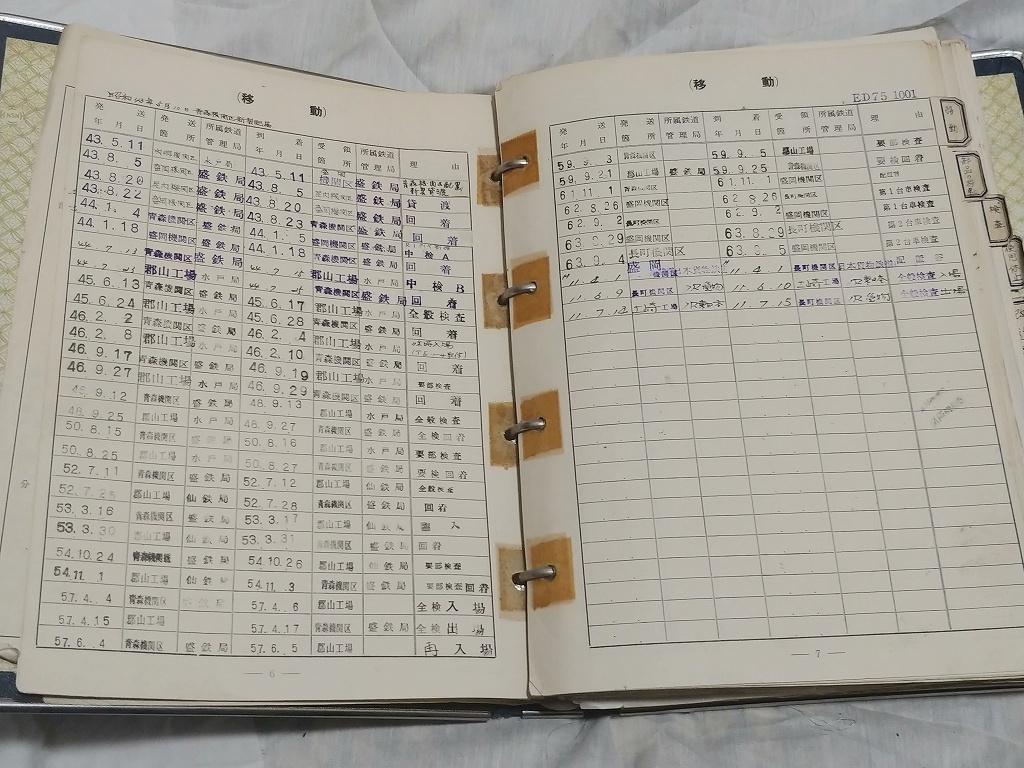 (移 動)
発送 年月日 発送箇所 所属鉄道管理局 到着 年月日 受領箇所 所属鉄道管理局 理由
43. 5. 11 43. 5. 11 機関区 盛鉄局
43. 8. 5 盛鉄局 43. 8. 5 盛鉄局 貸渡
43. 8. 20 盛鉄局 43. 8. 20 盛鉄局 回着
43. 8. 22 盛鉄局 43. 8. 23 盛鉄局
44. 1. 4 青森機関区 盛鉄局 44. 1. 5 盛岡機関区 盛鉄局 回着
44. 1. 18 盛岡機関区 盛鉄局 44. 1. 18 青森機関区 盛鉄局 中検A
青森機関区 盛鉄局 郡山工場 水戸局 中検B
郡山工場 水戸局 青森機関区 盛鉄局 回着
45. 6. 13 青森機関区 盛鉄局 45. 6. 17 郡山工場 水戸局 全般検査
45. 6. 24 郡山工場 水戸局 45. 6. 28 青森機関区 盛鉄局 回着
46. 2. 2 青森機関区 盛鉄局 46. 2. 4 郡山工場 水戸局
46. 2. 8 郡山工場 水戸局 46. 2. 10 青森機関区 盛鉄局 回着
46. 9. 17 青森機関区 盛鉄局 46. 9. 19 郡山工場 水戸局 要部検査
46. 9. 27 郡山工場 水戸局 46. 9. 29 青森機関区 盛鉄局 回着
48. 9. 12 青森機関区 盛鉄局 48. 9. 13 郡山工場 水戸局 全般検査
48. 9. 25 郡山工場 水戸局 48. 9. 27 青森機関区 盛鉄局 全検回着
50. 8. 15 青森機関区 盛鉄局 50. 8. 16 郡山工場 水戸局 要部検査
50. 8. 25 郡山工場 水戸局 50. 8. 27 青森機関区 盛鉄局 要検回着
52. 7. 11 青森機関区 盛鉄局 52. 7. 12 郡山工場 仙鉄局 全般検査
52. 7. 25 郡山工場 仙鉄局 52. 7. 28 青森機関区 盛鉄局 回着
53. 3. 16 青森機関区 盛鉄局 53. 3. 17 郡山工場 仙鉄局 入
53. 3. 30 郡山工場 仙鉄局 53. 3. 31 青森機関区 盛鉄局 回着
54. 10. 24 青森機関区 盛鉄局 54. 10. 26 郡山工場 仙鉄局 要部検査
54. 11. 1 郡山工場 仙鉄局 54. 11. 3 青森機関区 盛鉄局 要部検査回着
57. 4. 4 青森機関区 盛鉄局 57. 4. 6 郡山工場 全検入場
57. 4. 15 郡山工場 57. 4. 17 青森機関区 盛鉄局 全検出場
57. 6. 4 青森機関区 盛鉄局 57. 6. 5 郡山工場 再入場
— 6 —
(移 動)
ED75 1001
発送 年月日 発送箇所 所属鉄道管理局 到着 年月日 受領箇所 所属鉄道管理局 理由
59. 9. 3 青森機関区 59. 9. 5 郡山工場 要部検査
59. 9. 21 郡山工場 盛鉄局 59. 9. 25 青森機関区 要検回着
61. 11. 1 青森機関区 61. 11. 1 盛岡機関区
62. 8. 26 盛岡機関区 62. 8. 26 長町機関区 第1台車検査
62. 9. 2 長町機関区 62. 9. 2 盛岡機関区 第1台車検査
63. 8. 29 盛岡機関区 63. 8. 29 長町機関区 第2台車検査
63. 9. 4 長町機関区 63. 9. 5 盛岡機関区 第2台車検査
11. 4. 1 盛岡機関区 日本貨物鉄道 11. 4. 1 長町機関区 日本貨物鉄道
11. 6. 9 長町機関区 11. 6. 10 全般検査入場
11. 7. 14 11. 7. 15 長町機関区 全般検査出場
— 7 —
移動
検査